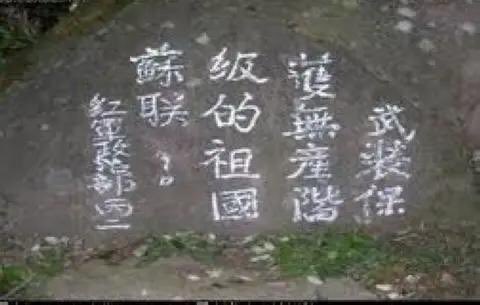 武装保
護無產階
级的祖國
蘇联！
紅軍政治部